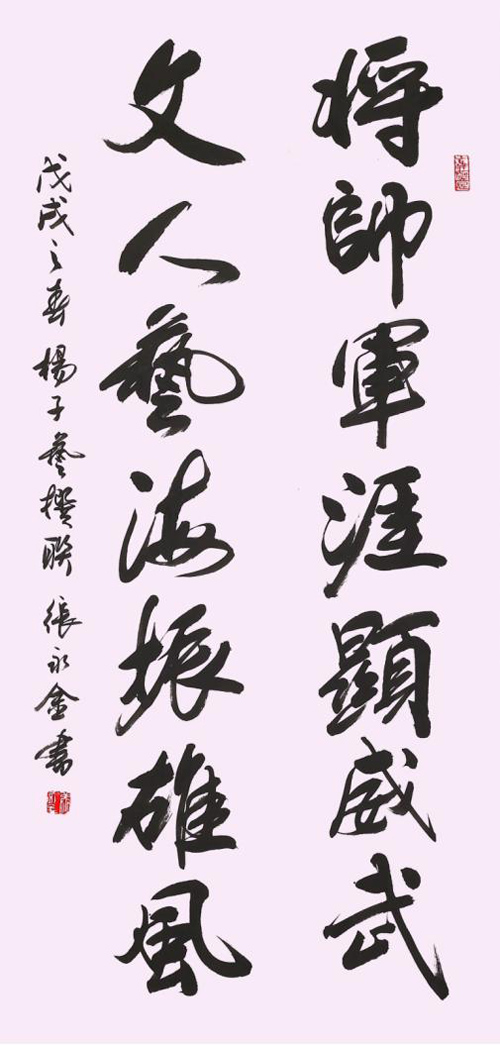 将帥軍涯顯威武
文人藝海振雄風
戊戌之春楊子藝撰联張永金書